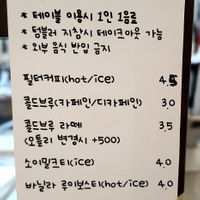 * 테이블 이용시 1인 1음료
* 텀블러 지참시 테이크아웃 가능
* 외부 음식 반입 금지
필터커피(hot/ice) 4.5
콜드브루(카페인/디카페인) 3.0
콜드브루 라떼 3.5
(오틀리 변경시 +500)
소이밀크티(ice) 4.0
바닐라 루이보스티(hot/ice) 4.0